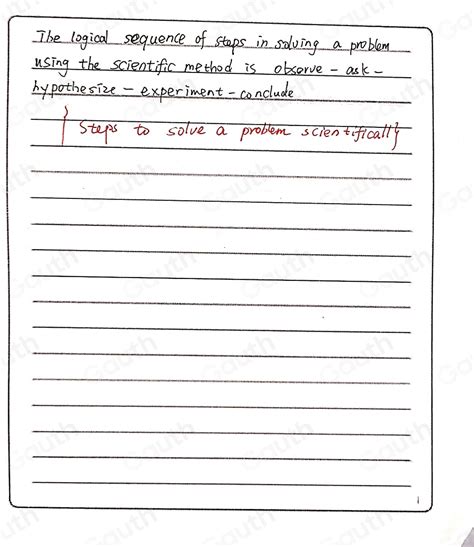 The logical sequence of steps in solving a problem
using the scientific method is observe - ask -
hypothesize - experiment - conclude
{ Steps to solve a problem scientifically }